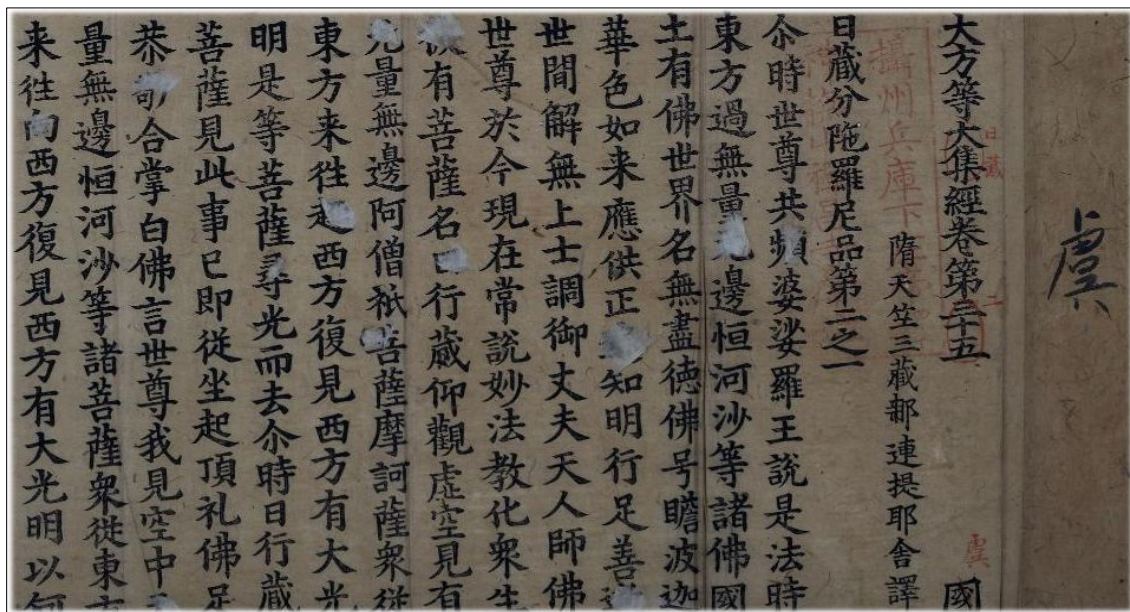 虞
大方等大集經卷第三十五 國
日藏 二
虞
隋天竺三藏那連提耶舍譯
攝州兵庫下
日藏分陁羅尼品第二之一
尒時世尊共頻婆娑羅王說是法時
東方過無量邊恒河沙等諸佛國
土有佛世界名無盡德佛号瞻波迦
華色如来應供正知明行足善
世間解無上士調御丈夫天人師佛
世尊於今現在常說妙法教化衆生
有菩薩名日行藏仰觀虛空見有
无量無邊阿僧祇菩薩摩訶薩衆從
東方来徃西方復見西方有大光
明是等菩薩尋光而去尒時日行藏
菩薩見此事已即從坐起頂礼佛足
恭敬合掌白佛言世尊我見空中
量無邊恒河沙等諸菩薩衆從東方
来徃向西方復見西方有大光明以何